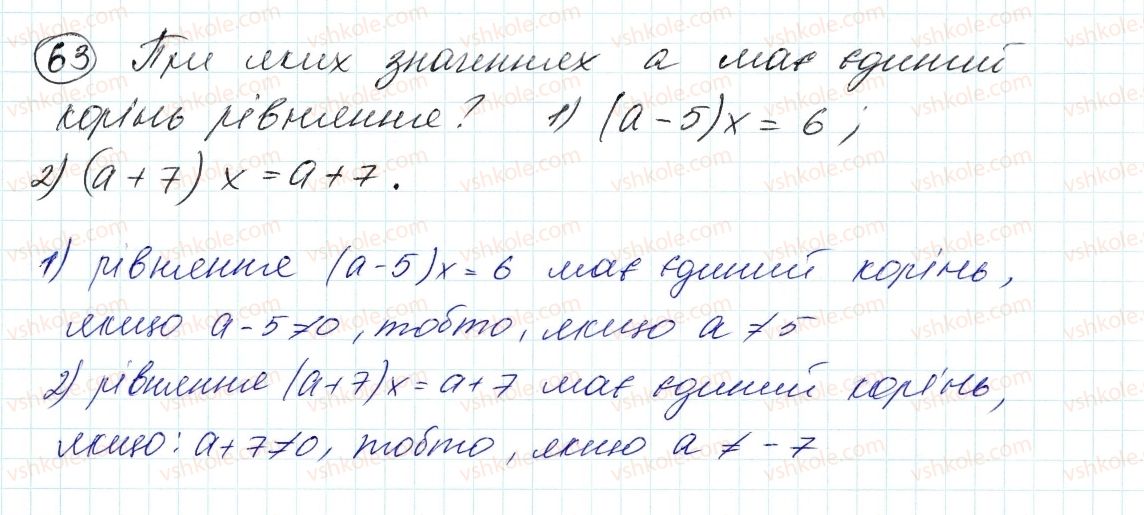 63 При яких значеннях а має єдиний
корінь рівняння? 1) (a-5)x = 6;
2) (a+7) x = a+7.
1) рівняння (a-5)x = 6 має єдиний корінь,
якщо a-5≠0, тобто, якщо a≠5
2) рівняння (a+7)x = a+7 має єдиний корінь,
якщо: a+7≠0, тобто, якщо a ≠ -7